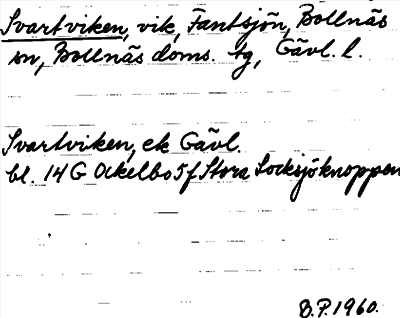 Svartviken, vik, Fantsjön, Bollnäs
sn, Bollnäs doms. tg, Gävl. l.
Svartviken, ek Gävl.
bl. 14 G Ockelbo 5f Stora Locksjöknoppen
B.P. 1960.